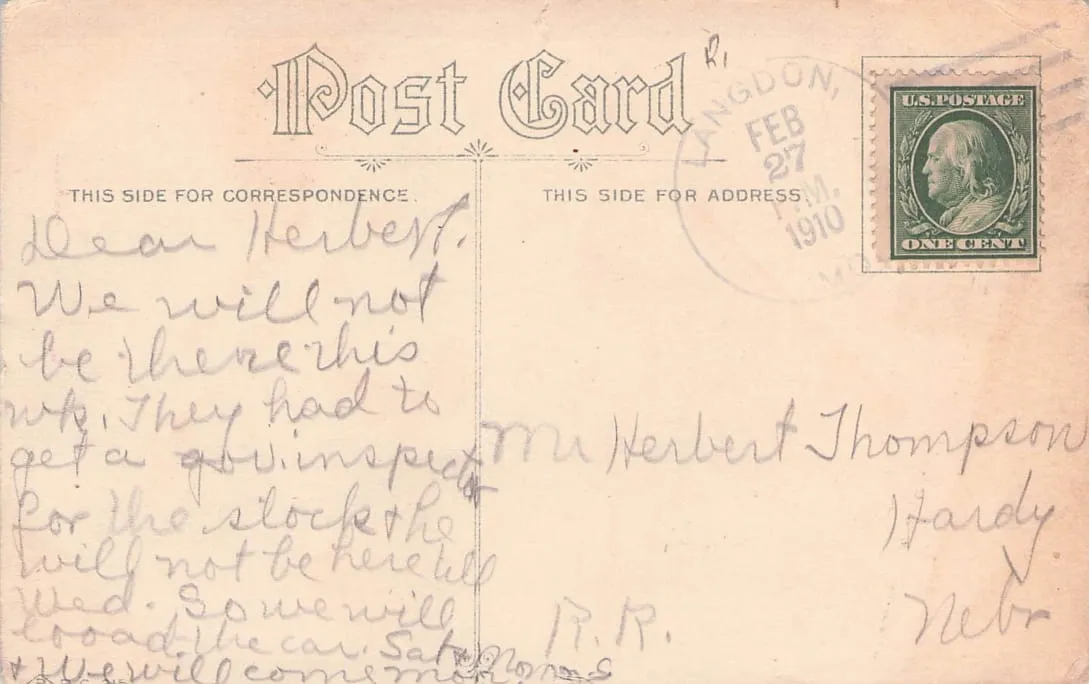 Post Card
R,
LANGDON,
FEB
27
P.M.
1910
MO
U.S. POSTAGE
ONE CENT
THIS SIDE FOR CORRESPONDENCE.
THIS SIDE FOR ADDRESS.
Dear Herbert.
We will not
be there this
wk. They had to
get a gov. inspector
for the stock & he
will not be here till
Wed. So we will
looad the car. Sat
& We will come mon.
Mr Herbert Thompson
Hardy
Nebr
R.R.